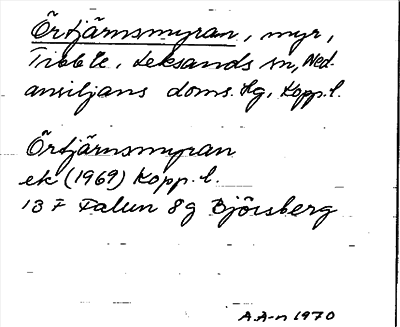 Örtjärnsmyran, myr,
Tibble, Leksands sn, Ned-
ansiljans doms. hg, Kopp. l.
Örtjärnsmyran
ek (1969) Kopp. l.
13 F Falun 8 g Björsberg
A.A-n 1970